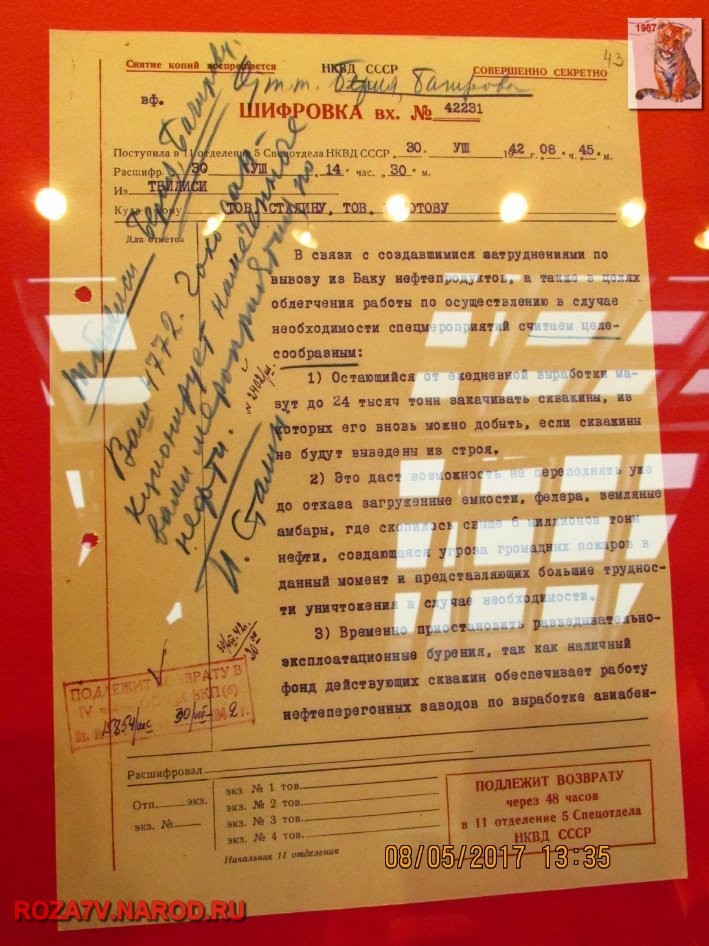 1987
43
Снятие копий воспрещается
НКВД СССР
СОВЕРШЕННО СЕКРЕТНО
вф.
тт. Берия, Багирова
ШИФРОВКА вх. № 42231
Поступила в 11 отделение 5 Спецотдела НКВД СССР „30. УШ 1942 „08" ч. „45" м.
Расшифр. 30 УШ „14" час. „30" м.
Из ТБИЛИСИ
Куда и кому ТОВ. СТАЛИНУ, ТОВ. МОЛОТОВУ
Для отметок
Тбилиси Берия, Багирову.
Ваш 4772. Гоко сан-
кционирует намеченные
вами мероприятия по
нефти.
И. Сталин.
№ 2402/ш.
В связи с создавшимися затруднениями по
вывозу из Баку нефтепродуктов, а также в целях
облегчения работы по осуществлению в случае
необходимости спецмероприятий считаем целе-
сообразным:
1) Остающийся от ежедневной выработки ма-
зут до 24 тысяч тонн закачивать скважины, из
которых его вновь можно добыть, если скважины
не будут выведены из строя.
2) Это даст возможность не переполнять уже
до отказа загруженные емкости, фелера, земляные
амбары, где скопилось свыше 6 миллионов тонн
нефти, создающаяся угроза громадных пожаров в
данный момент и представляющих большие труднос-
ти уничтожения в случае необходимости.
3) Временно приостановить разведывательно-
эксплоатационные бурения, так как наличный
фонд действующих скважин обеспечивает работу
нефтеперегонных заводов по выработке авиабен-
ПОДЛЕЖИТ ВОЗВРАТУ В
ВКП(б)
30/VIII
Расшифровал
Отп. экз.
экз. №
экз № 1 тов.
экз. № 2 тов.
экз. № 3 тов.
экз. № 4 тов.
Начальник 11 отделения
ПОДЛЕЖИТ ВОЗВРАТУ
через 48 часов
в 11 отделение 5 Спецотдела
НКВД СССР
08/05/2017 13:35
ROZA7V.NAROD.RU